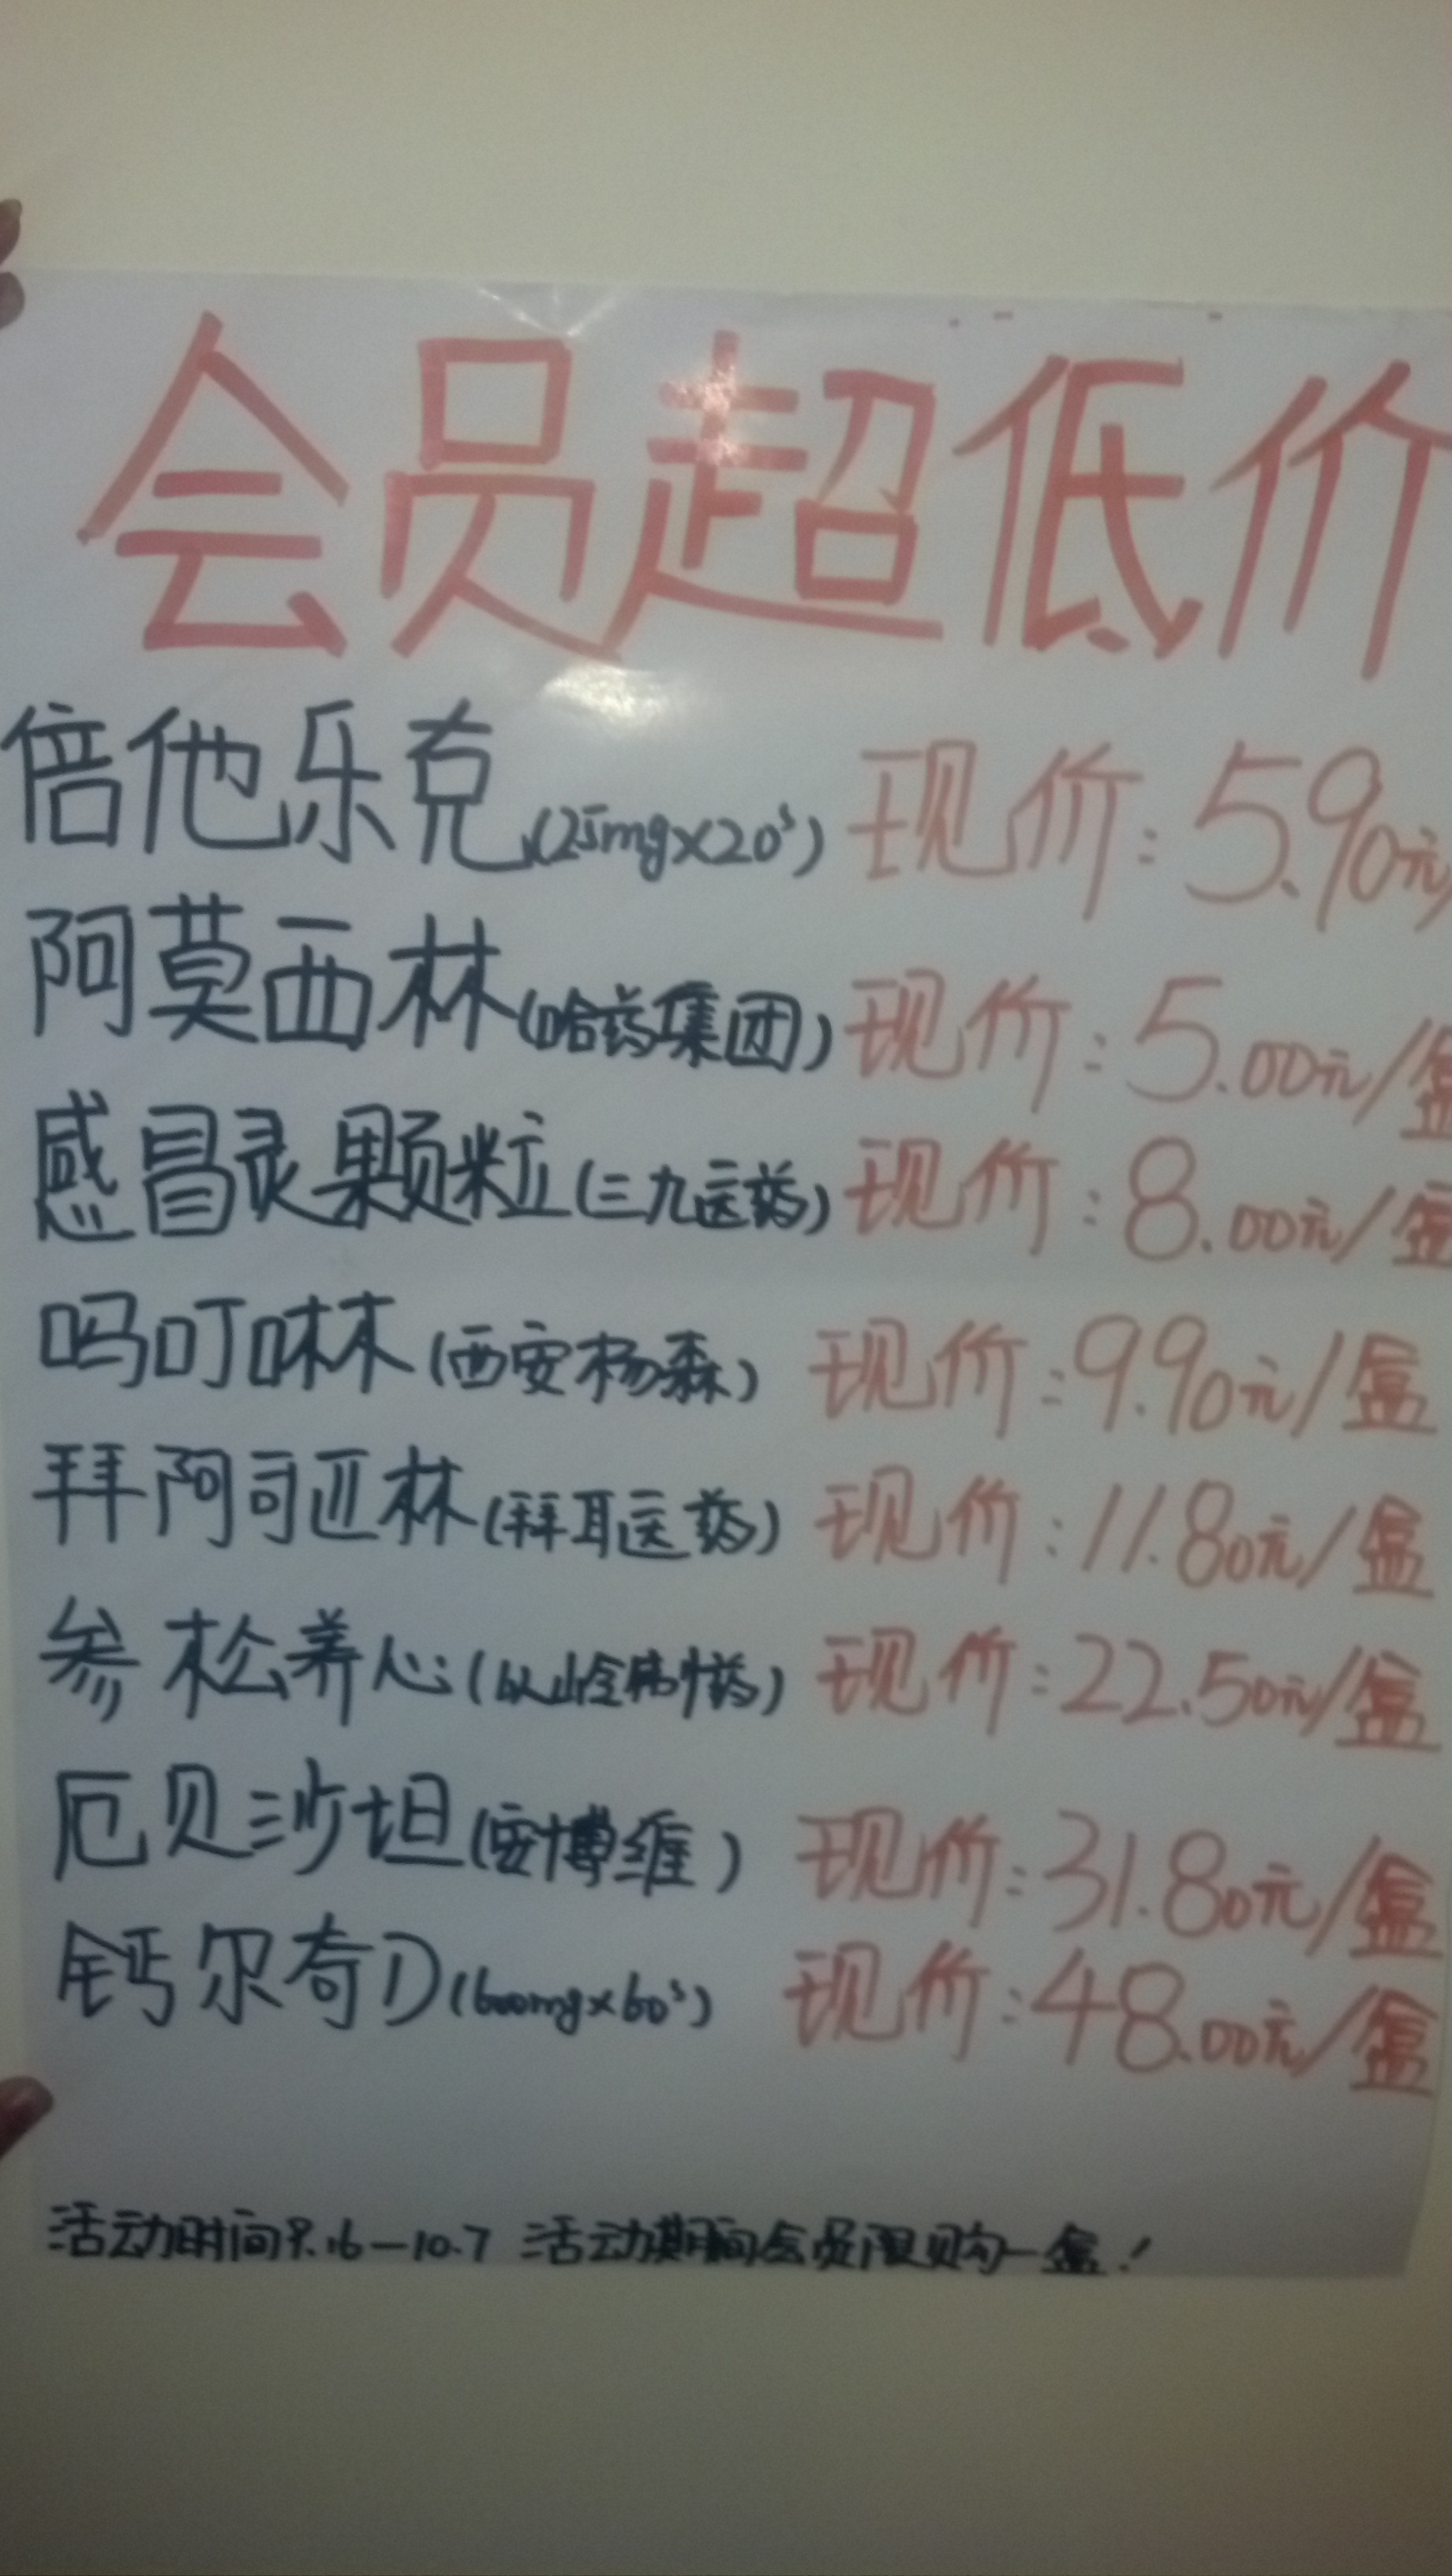 会员超低价
倍他乐克(25mg×20's) 现价:5.90元/
阿莫西林(哈药集团) 现价:5.00元/盒
感冒灵颗粒(三九医药) 现价:8.00元/盒
吗叮啉(西安杨森) 现价:9.90元/盒
拜阿司匹林(拜耳医药) 现价:11.80元/盒
参松养心(以岭药) 现价:22.50元/盒
厄贝沙坦(安博维) 现价:31.80元/盒
钙尔奇D(600mg×60's) 现价:48.00元/盒
活动时间9.16—10.7 活动期间会员限购一盒!